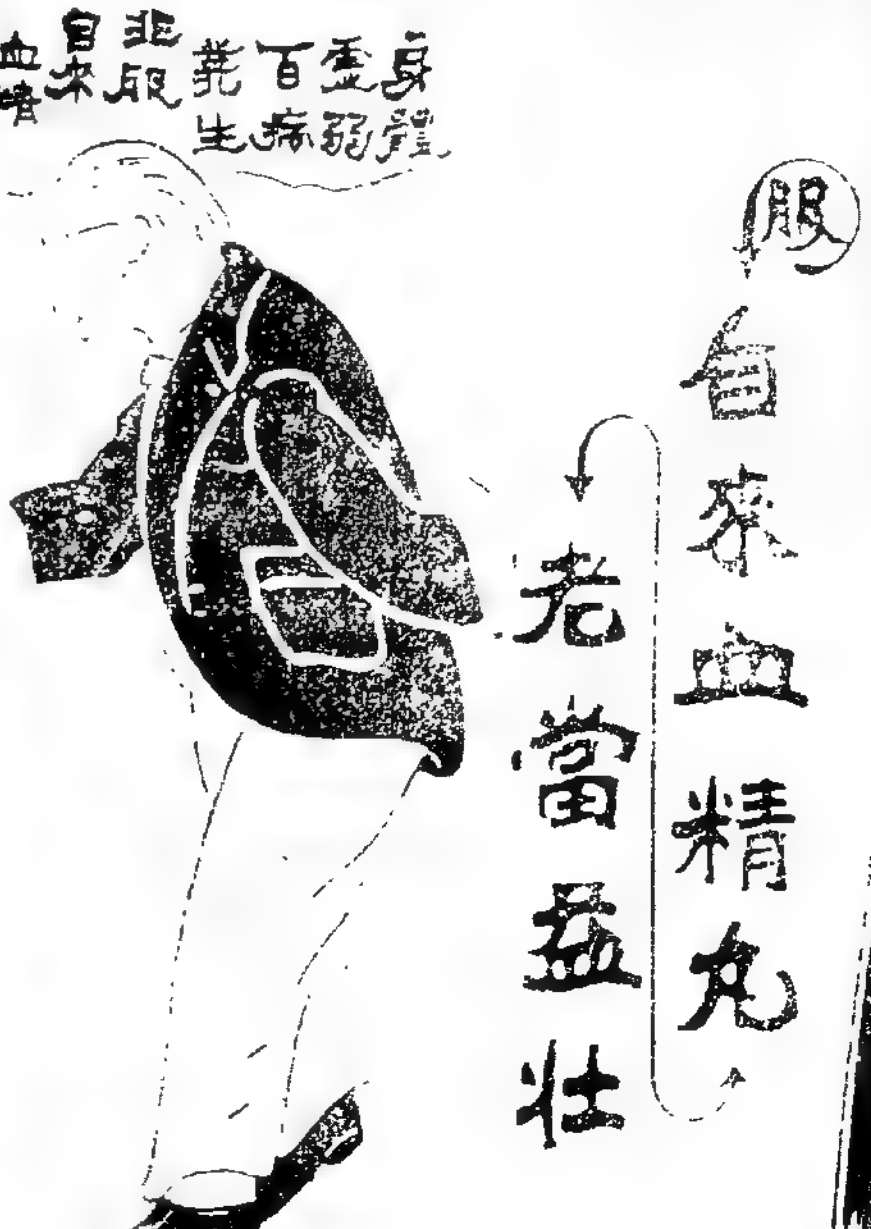 身體
虛弱
百病
叢生
非服
自來
血精
服
自來血精丸
老當益壯